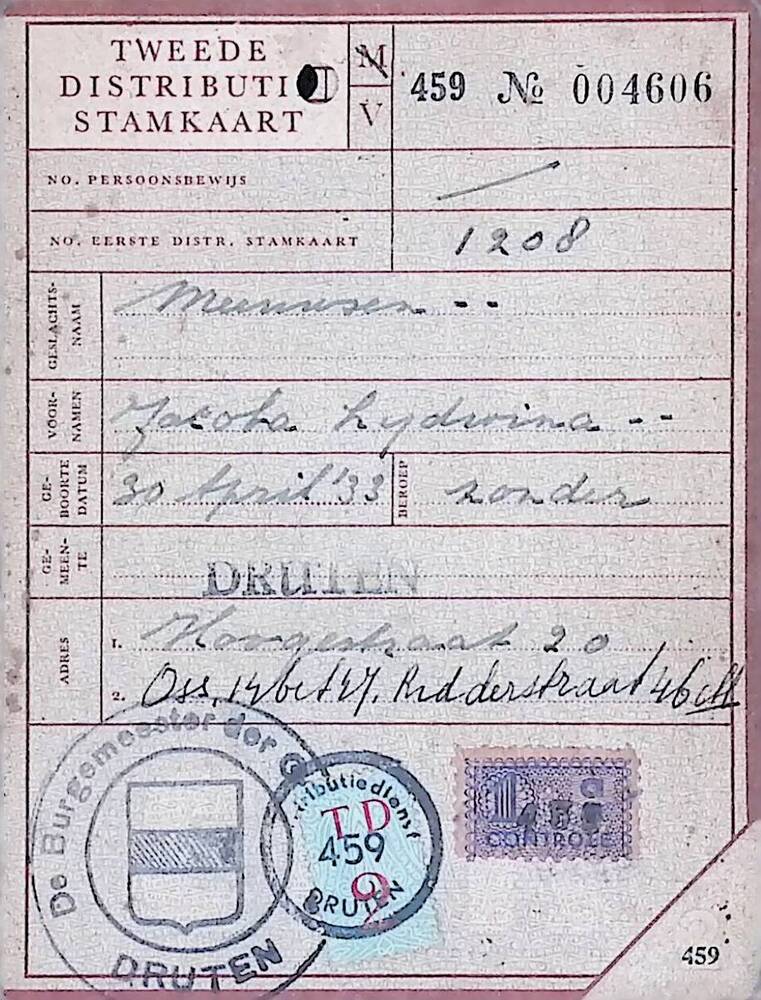 TWEEDE
DISTRIBUTIE
STAMKAART
M
V
459 № 004606
NO. PERSOONSBEWIJS
NO. EERSTE DISTR. STAMKAART 1208
GESLACHTS-
NAAM
Meeuwsen --
VOOR-
NAMEN
Jacoba Lydwina --
GE-
BOORTE
DATUM
30 April '33
BEROEP
zonder
GE-
MEEN-
TE
DRUTEN
ADRES
1. Hoogestraat 20
2. Oss, 14 Ridderstraat 46
De Burgemeester der G
DRUTEN
tributiedienst
TD
459
DRUTEN
2
1
459
CONTROLE
459